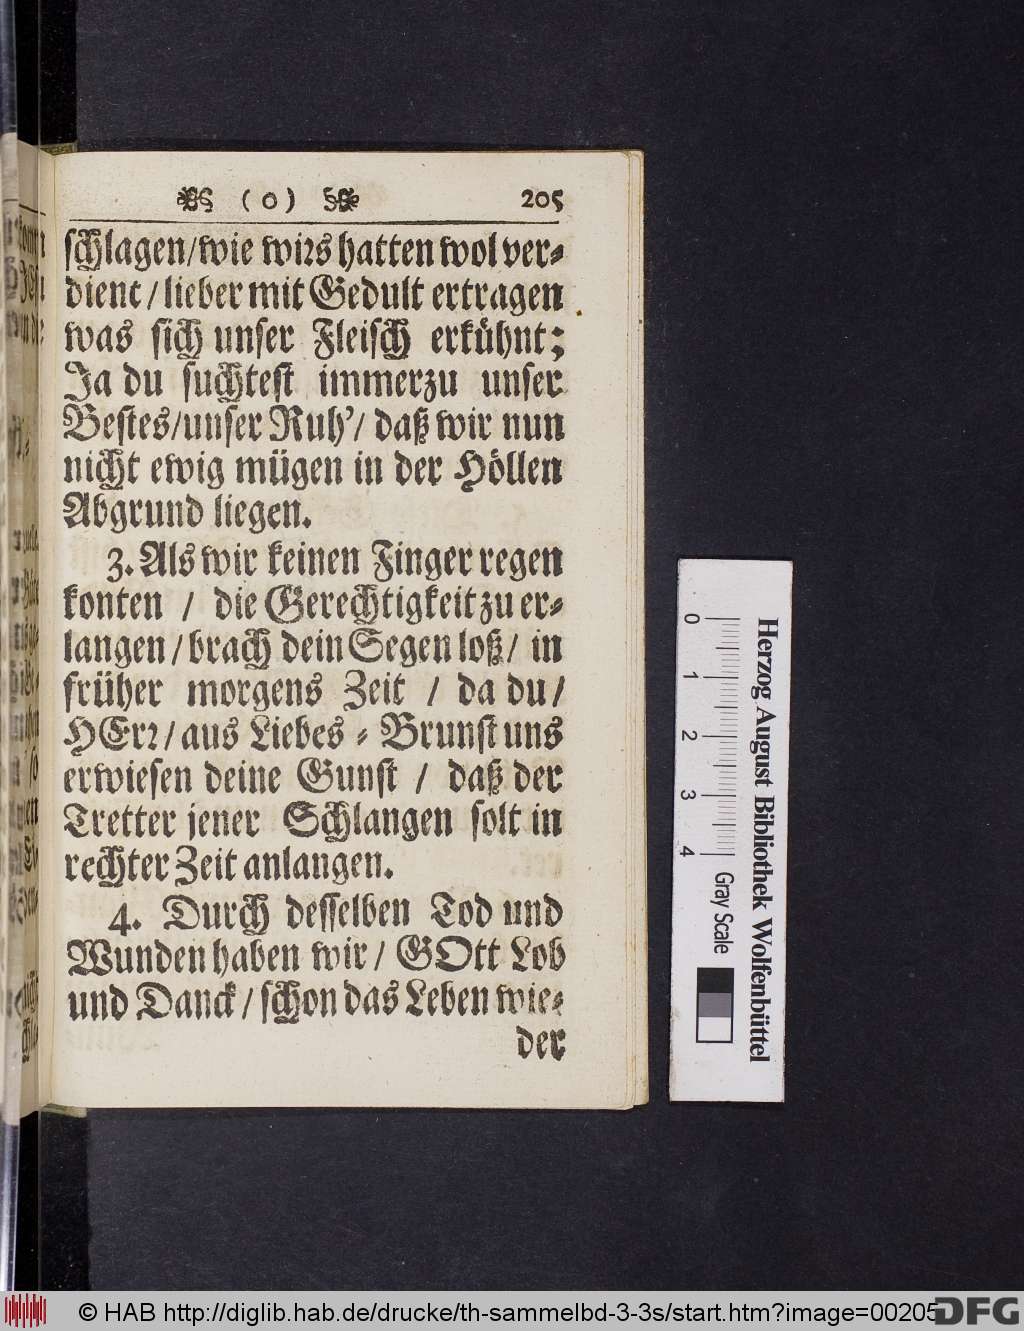 ( 0 ) 205
schlagen/wie wirs hatten wol ver-
dient / lieber mit Gedult ertragen
was sich unser Fleisch erkühnt;
Ja du suchtest immerzu unser
Bestes/unser Ruh'/ daß wir nun
nicht ewig mügen in der Höllen
Abgrund liegen.
3. Als wir keinen Finger regen
konten / die Gerechtigkeit zu er-
langen / brach dein Segen loß / in
früher morgens Zeit / da du /
HErr / aus Liebes - Brunst uns
erwiesen deine Gunst / daß der
Tretter jener Schlangen solt in
rechter Zeit anlangen.
4. Durch desselben Tod und
Wunden haben wir / GOtt Lob
und Danck / schon das Leben wie-
der
Herzog August Bibliothek Wolfenbüttel
0 1 2 3 4 Gray Scale
© HAB http://diglib.hab.de/drucke/th-sammelbd-3-3s/start.htm?image=00205
DFG